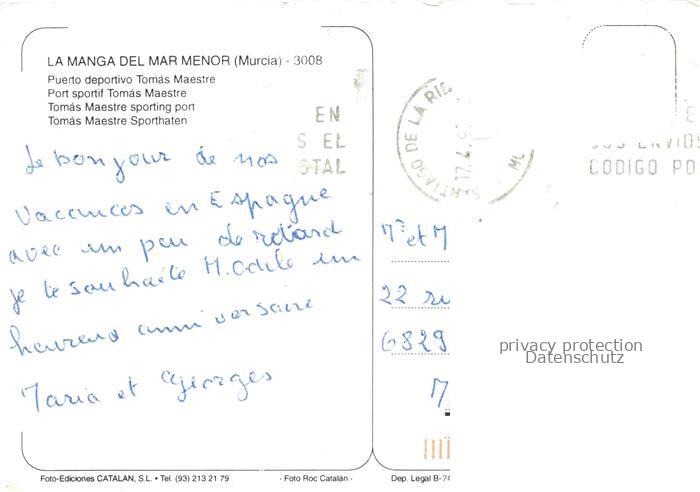 LA MANGA DEL MAR MENOR (Murcia) - 3008
Puerto deportivo Tomás Maestre
Port sportif Tomás Maestre
Tomás Maestre sporting port
Tomás Maestre Sporthaten
EN
S EL
STAL
SANTIAGO DE LA RIB
17.4.9
MU
E
SUS ENVIOS
CODIGO PO
Le bonjour de nos
vacances en Espagne
avec un peu de retard
je te souhaite M.Odile un
heureux anniversaire
Maria et Georges
Mr et M
22 ru
6829
M
privacy protection
Datenschutz
Foto-Ediciones CATALAN, S.L. • Tel. (93) 213 21 79
- Foto Roc Catalán -
Dep. Legal B-24